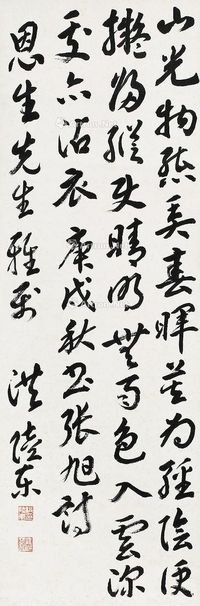 山光物態弄春暉莫為輕陰便
擬歸縱使晴明無雨色入雲深
處亦沾衣 庚戌秋書張旭詩
恩生先生雅 洪陸東